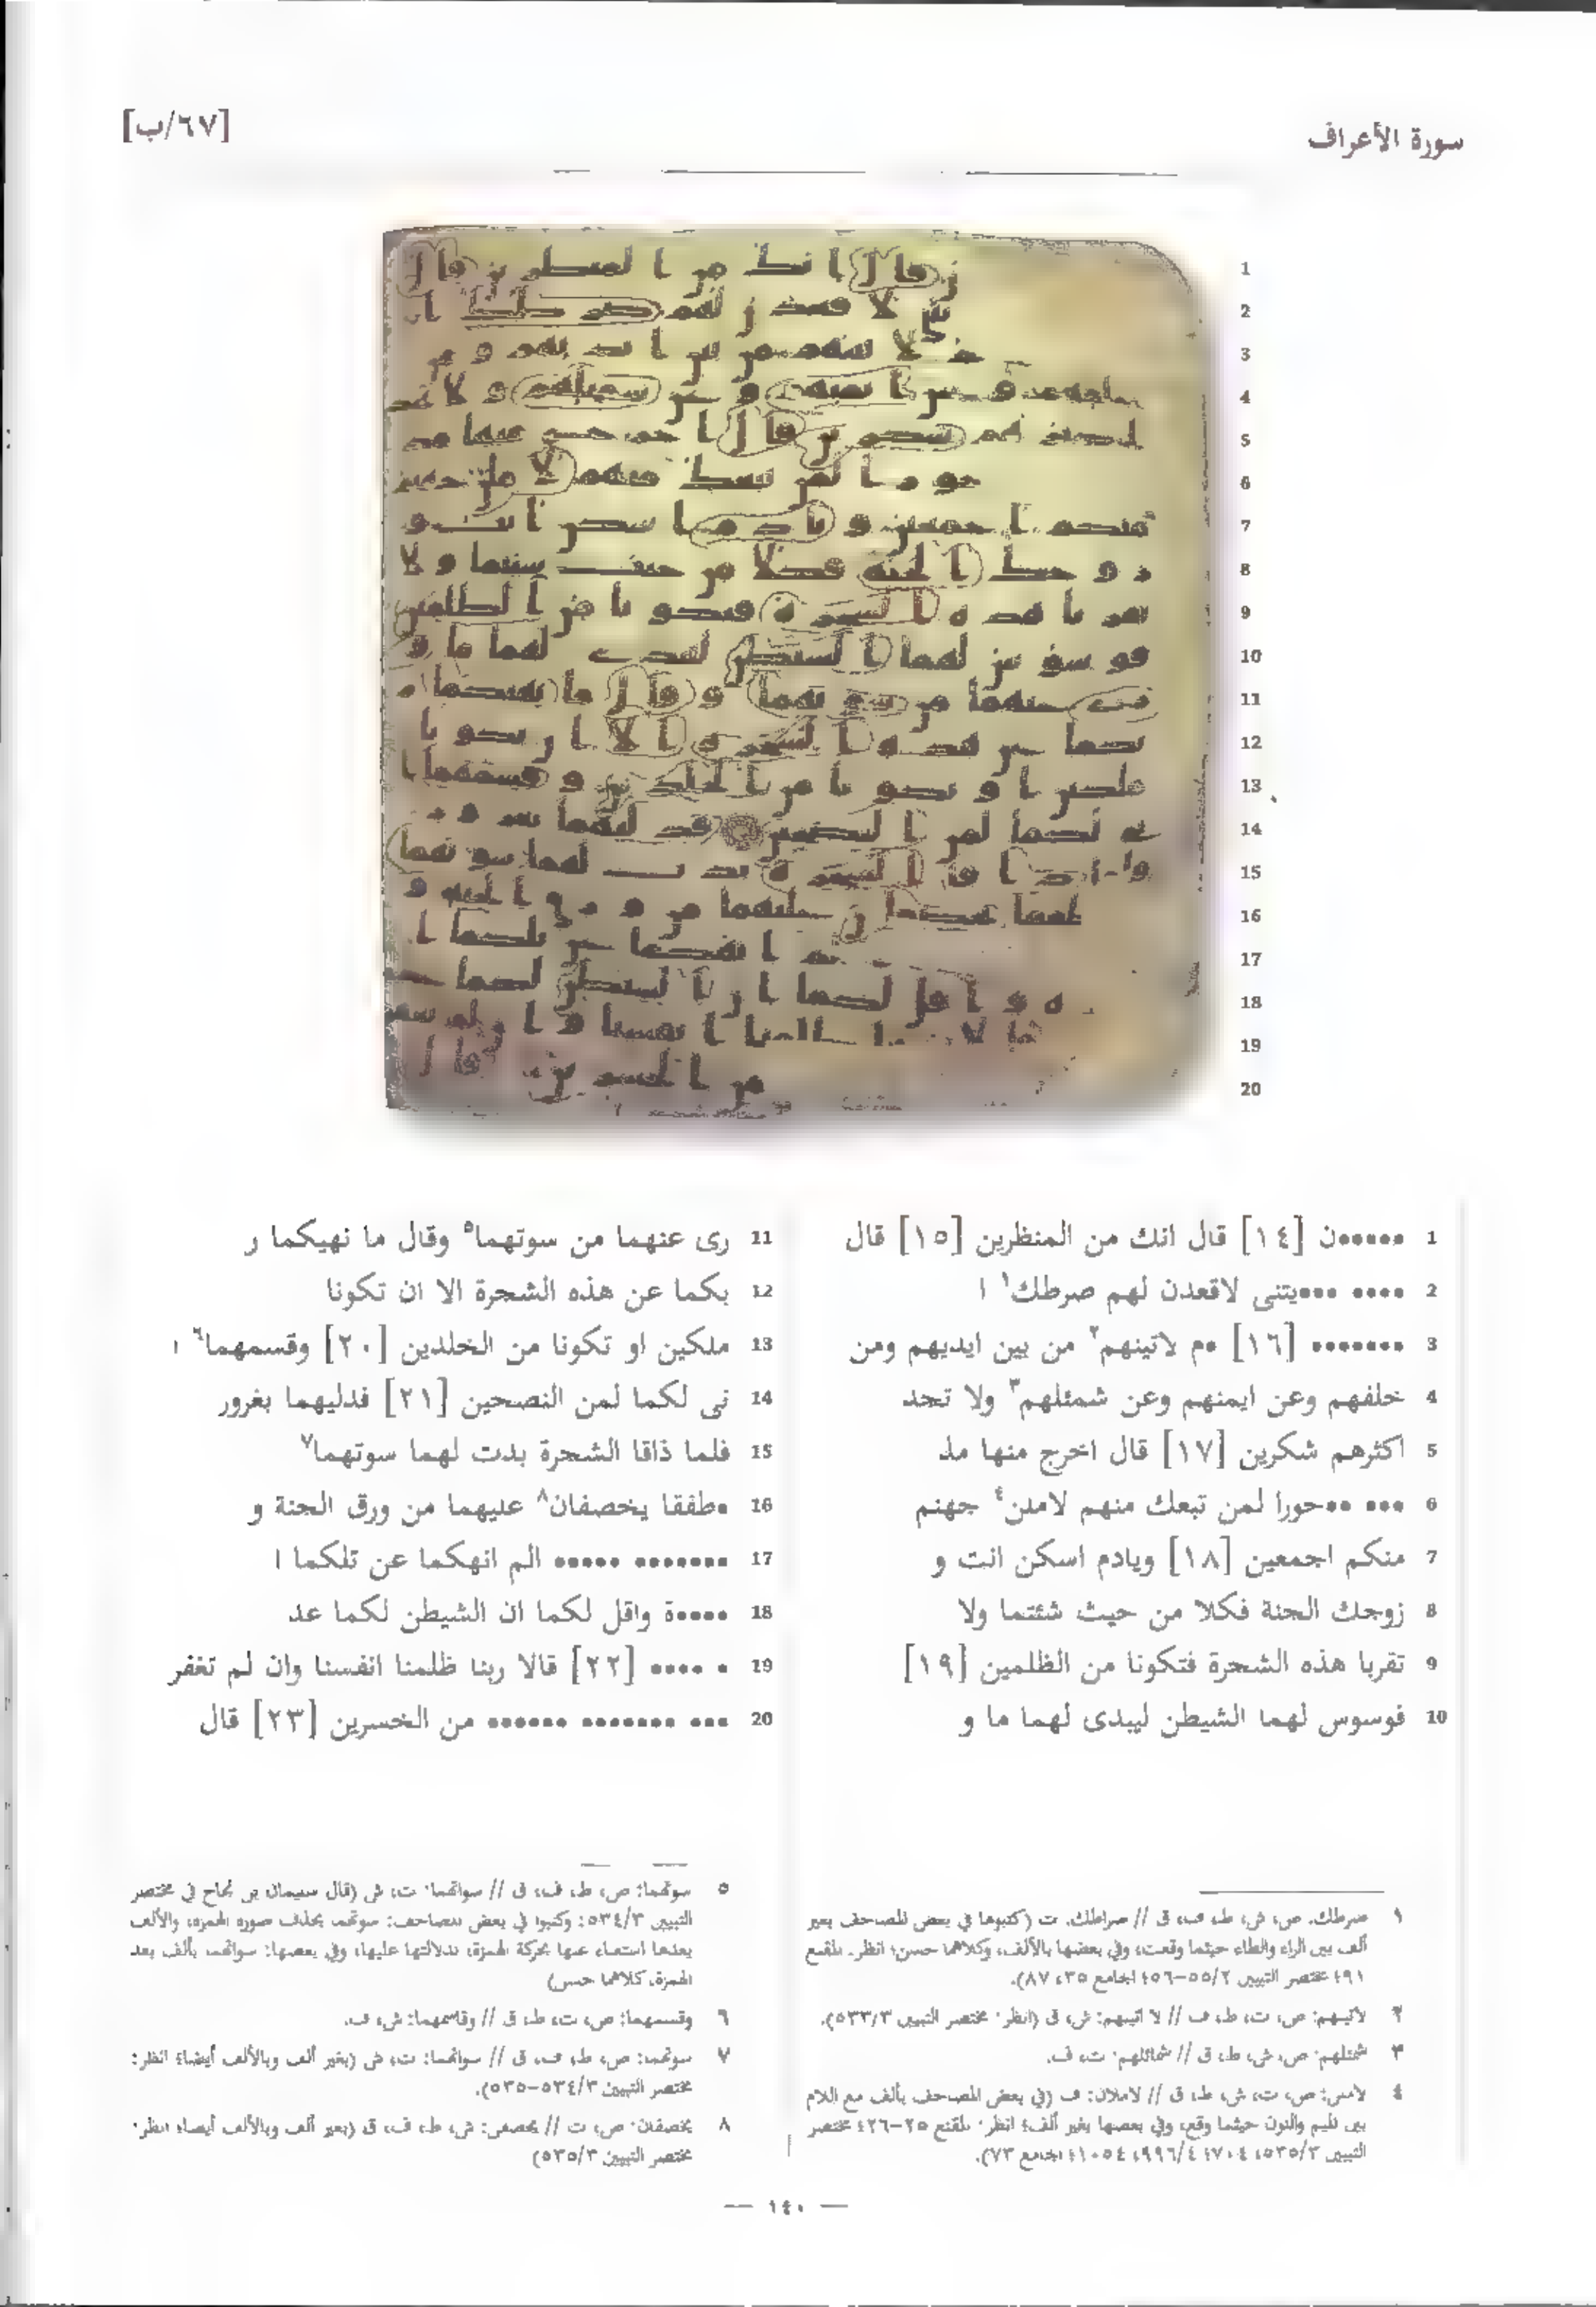 سورة الأعراف
[٦٧/ب]
1 •••••ن [١٤] قال انك من المنظرين [١٥] قال
2 •••• •••يتنى لاقعدن لهم صرطك١ ا
3 ••••••• [١٦] •م لاتينهم٢ من بين ايديهم ومن
4 خلفهم وعن ايمنهم وعن شمئلهم٣ ولا تجد
5 اكثرهم شكرين [١٧] قال اخرج منها مذ
6 ••• ••حورا لمن تبعك منهم لاملن٤ جهنم
7 منكم اجمعين [١٨] ويادم اسكن انت و
8 زوجك الجنة فكلا من حيث شئتما ولا
9 تقربا هذه الشجرة فتكونا من الظلمين [١٩]
10 فوسوس لهما الشيطن ليبدى لهما ما و
11 رى عنهما من سوتهما٥ وقال ما نهيكما ر
12 بكما عن هذه الشجرة الا ان تكونا
13 ملكين او تكونا من الخلدين [٢٠] وقسمهما٦ ا
14 نى لكما لمن النصحين [٢١] فدليهما بغرور
15 فلما ذاقا الشجرة بدت لهما سوتهما٧
16 •طفقا يخصفان٨ عليهما من ورق الجنة و
17 ••••••• ••••• الم انهكما عن تلكما ا
18 •••••ة واقل لكما ان الشيطن لكما عد
19 • •••• [٢٢] قالا ربنا ظلمنا انفسنا وان لم تغفر
20 ••• ••••••• •••••• من الخسرين [٢٣] قال
١ صرطك: ص، ش، ط، ف، ق // صراطك: ت (كتبوها في بعض المصاحف بغير
ألف بين الراء والطاء حيثما وقعت، وفي بعضها بالألف، وكلاهما حسن؛ انظر: المقنع
٩١؛ مختصر التبيين ٥٥/٢-٥٦؛ الجامع ٣٥، ٨٧).
٢ لاتينهم: ص، ت، ط، ف // لا اتينهم: ش، ق (انظر: مختصر التبيين ٥٣٣/٣).
٣ شمئلهم: ص، ش، ط، ق // شمائلهم: ت، ف.
٤ لاملن: ص، ت، ش، ط، ق // لاملان: ف (في بعض المصاحف بألف مع اللام
بين الميم والنون حيثما وقع، وفي بعضها بغير ألف؛ انظر: المقنع ٢٥-٢٦؛ مختصر
التبيين ٥٣٥/٣، ٧٠٤؛ ٩٩٦/٤، ١٠٥٤؛ الجامع ٧٣).
٥ سوتهما: ص، ط، ف، ق // سواتهما: ت، ش (قال سليمان بن نجاح في مختصر
التبيين ٥٣٤/٣: وكتبوا في بعض المصاحف: سوتهما بحذف صورة الهمزة، والألف
بعدها استغناء عنها بحركة الهمزة، لدلالتها عليها، وفي بعضها: سواتهما بألف بعد
الهمزة، كلاهما حسن)
٦ وقسمهما: ص، ت، ط، ق // وقاسمهما: ش، ف.
٧ سوتهما: ص، ط، ف، ق // سواتهما: ت، ش (بغير ألف وبالألف أيضا؛ انظر:
مختصر التبيين ٥٣٤/٣-٥٣٥).
٨ يخصفان: ص، ت // يخصفن: ش، ط، ف، ق (بغير ألف وبالألف أيضا؛ انظر:
مختصر التبيين ٥٣٥/٣)
— ١٤٠ —